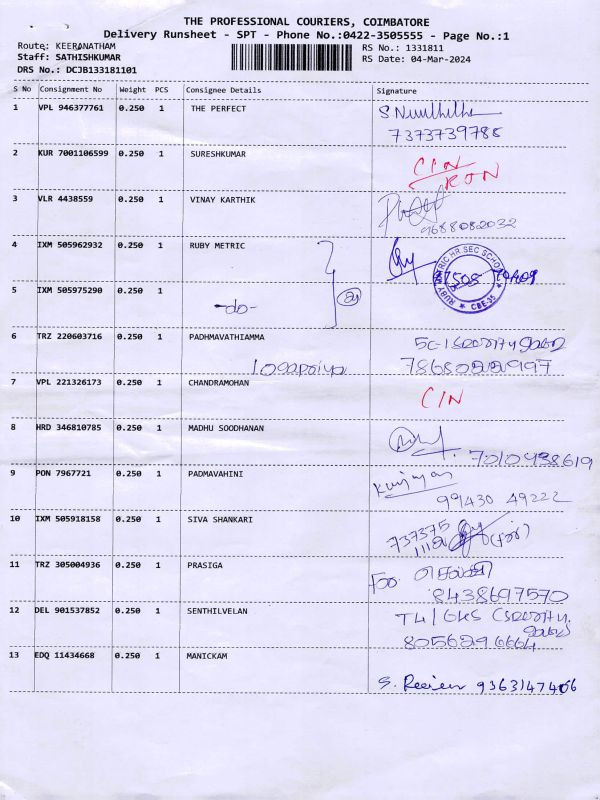 THE PROFESSIONAL COURIERS, COIMBATORE
Delivery Runsheet - SPT - Phone No.:0422-3505555 - Page No.:1
Route: KEERANATHAM
RS No.: 1331811
Staff: SATHISHKUMAR
RS Date: 04-Mar-2024
DRS No.: DCJB133181101
S No Consignment No Weight PCS Consignee Details Signature
1 VPL 946377761 0.250 1 THE PERFECT
7373739785
2 KUR 7001106599 0.250 1 SURESHKUMAR
CIN
RTN
3 VLR 4438559 0.250 1 VINAY KARTHIK
9688082032
4 IXM 505962932 0.250 1 RUBY METRIC
RUBY MATRIC HR.SEC SCHOOL
CBE-35
5 IXM 505975290 0.250 1
-do-
6 TRZ 220603716 0.250 1 PADHMAVATHIAMMA
7868022997
7 VPL 221326173 0.250 1 CHANDRAMOHAN
CIN
8 HRD 346810785 0.250 1 MADHU SOODHANAN
7010438619
9 PON 7967721 0.250 1 PADMAVAHINI
99430 49222
10 IXM 505918158 0.250 1 SIVA SHANKARI
737375
(for)
11 TRZ 305004936 0.250 1 PRASIGA
for செல்வி
8438697570
12 DEL 901537852 0.250 1 SENTHILVELAN
8056296664
13 EDQ 11434668 0.250 1 MANICKAM
S. 9363147406